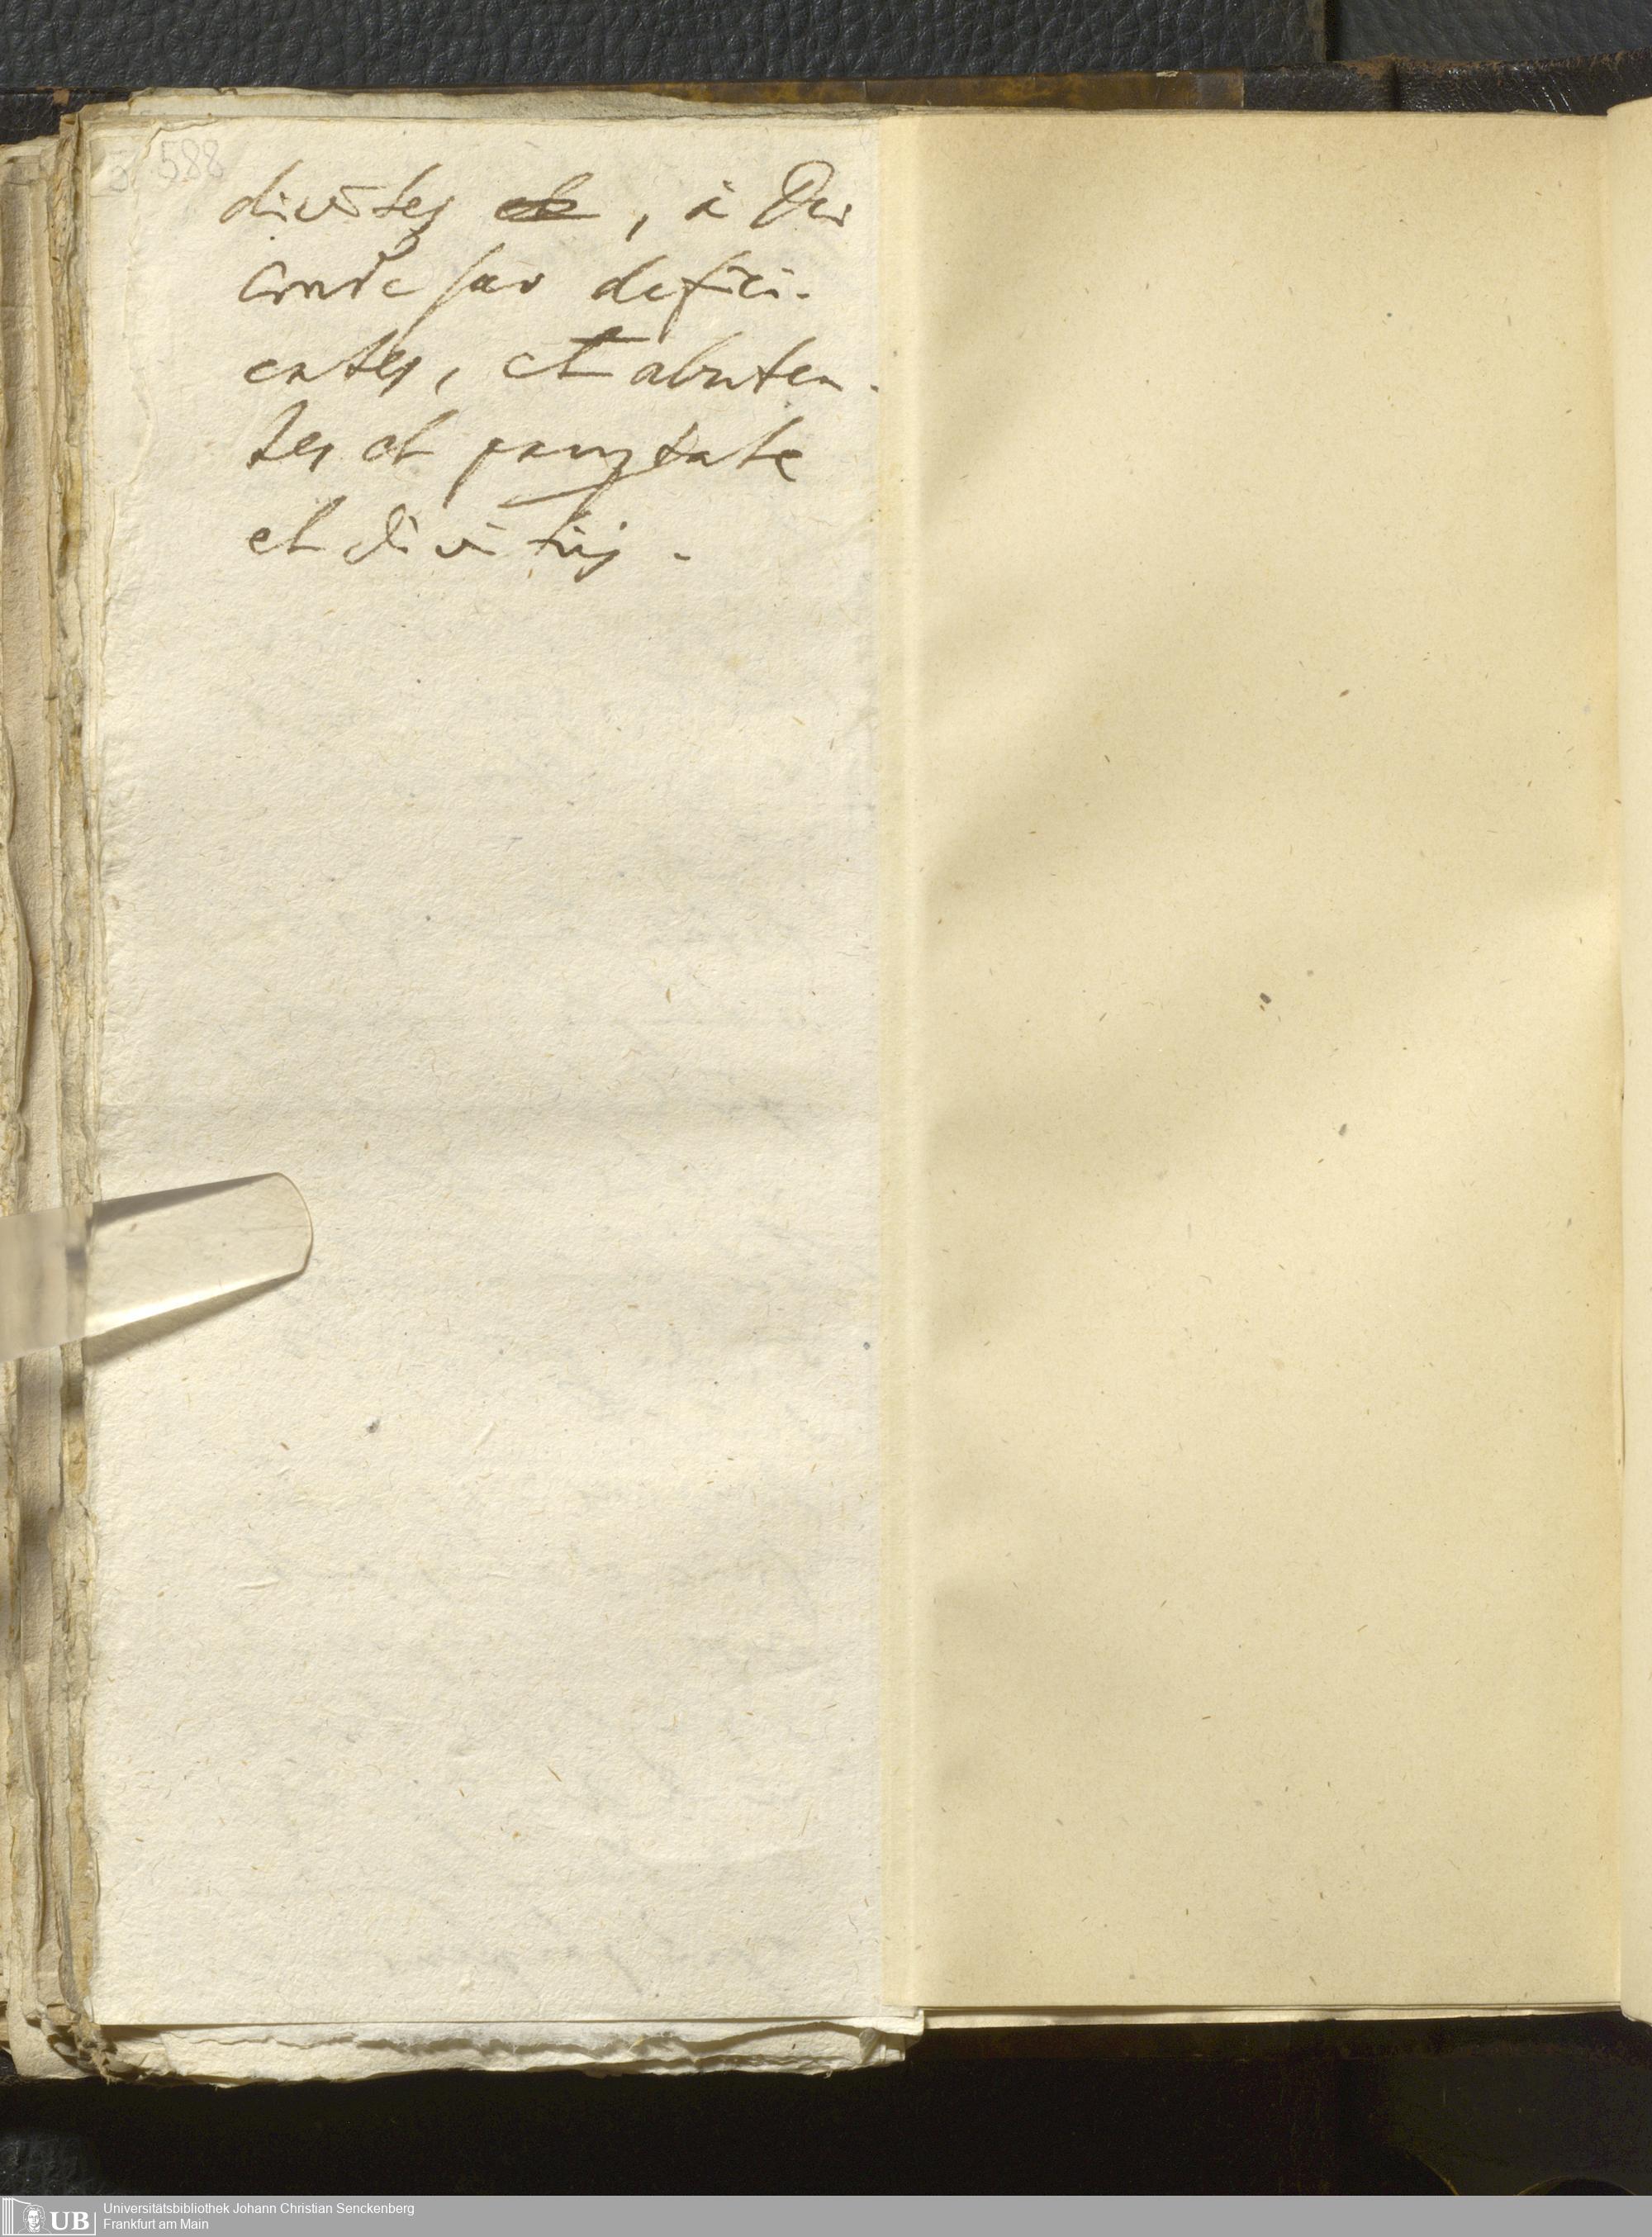 588
divites <s>et</s>, à Deo
corde suo defici-
entes, et abuten-
tes et paupertate
et divitiis.
UB
Universitätsbibliothek Johann Christian Senckenberg
Frankfurt am Main